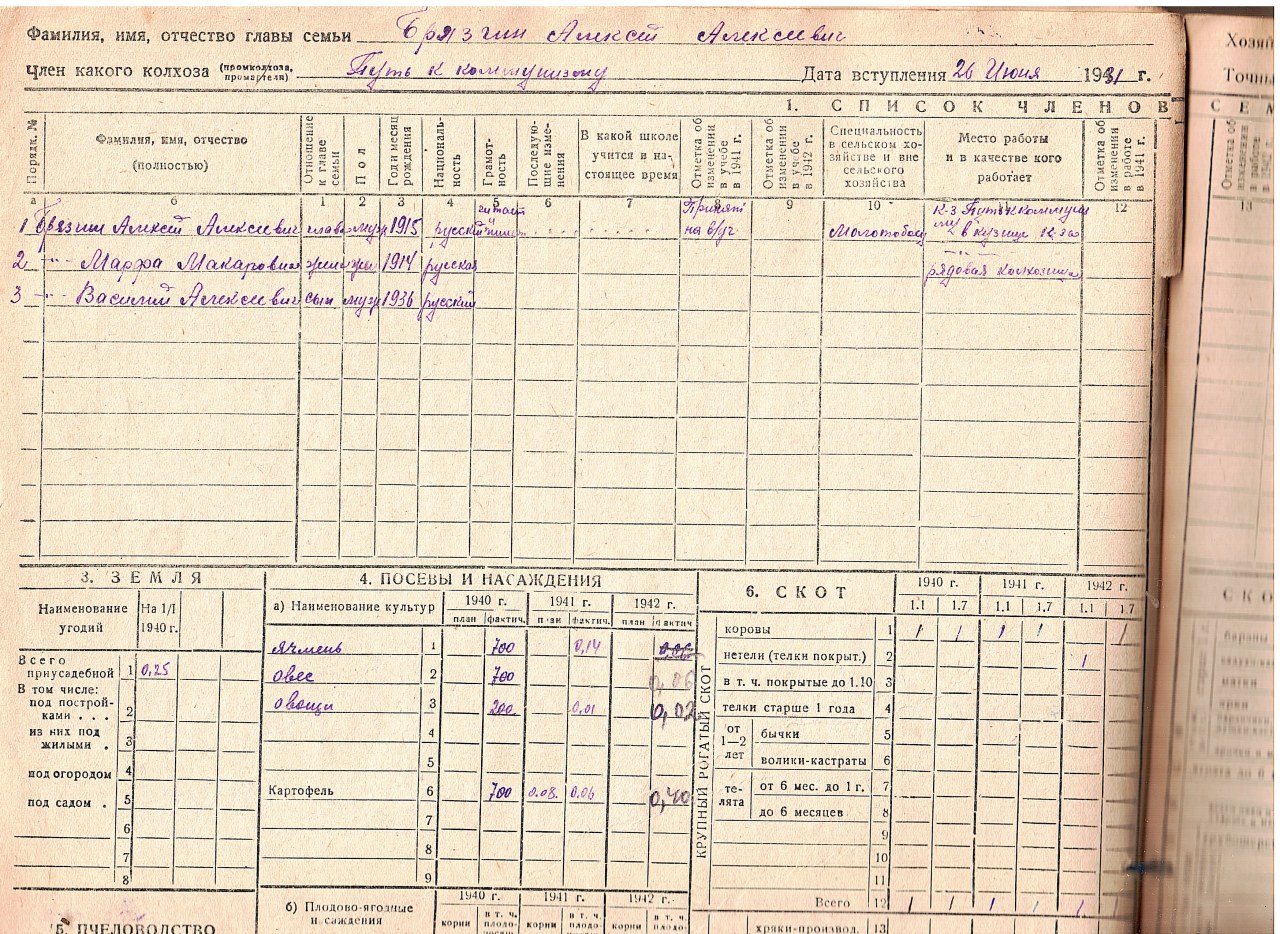 Фамилия, имя, отчество главы семьи Брязгин Алексей Алексеевич
Член какого колхоза (промколхоза, промартели) Путь к коммунизму Дата вступления 26 Июня 1931 г.
1. СПИСОК ЧЛЕНОВ
Порядк. №
Фамилия, имя, отчество (полностью)
Отношение к главе семьи
Пол
Год и месяц рождения
Националь-ность
Грамот-ность
Последую-щие изме-нения
В какой школе учится в на-стоящее время
Отметка об изменении в учебе в 1941 г.
Отметка об изменении в учебе в 1942 г.
Специальность в сельском хо-зяйстве и вне сельского хозяйства
Место работы и в качестве кого работает
Отметка об изменении в работе в 1941 г.
а б 1 2 3 4 5 6 7 8 9 10 11 12
1 Брязгин Алексей Алексеевич глава муж 1915 русский читает Принят на в/уч Молотобоец к-з Путь к коммуни в кузнице
2 -"- Марфа Макаровна жена жен 1914 русская рядовая колхозница
3 -"- Василий Алексеевич сын муж 1936 русский
3. ЗЕМЛЯ
Наименование угодий На 1/I 1940 г.
Всего приусадебной 1 0,25
В том числе:
под построй-ками . . . 2
из них под жилыми . 3
под огородом 4
под садом . 5
6
7
8
5. ПЧЕЛОВОДСТВО
4. ПОСЕВЫ И НАСАЖДЕНИЯ
а) Наименование культур 1940 г. 1941 г. 1942 г.
план фактич. план фактич. план фактич
Ячмень 1 700 0,14
Овес 2 700 0,06
Овощи 3 200 0,01 0,02
4
5
Картофель 6 700 0.08. 0.06 0,40
7
8
9
б) Плодово-ягодные насаждения 1940 г. 1941 г. 1942 г.
корни в т. ч. плодо- корни в т. ч. плодо- корни в т. ч. плодо-
6. СКОТ
1940 г. 1941 г. 1942 г.
1.1 1.7 1.1 1.7 1.1 1.7
КРУПНЫЙ РОГАТЫЙ СКОТ
коровы 1 1 1 1 1 1
нетели (телки покрыт.) 2 1
в т. ч. покрытые до 1.10 3
телки старше 1 года 4
от 1—2 лет бычки 5
волики-кастраты 6
те-лята от 6 мес. до 1 г. 7
до 6 месяцев 8
9
10
11
Всего 12 1 1 1 1 1 1
хряки-производ. 13
Хозяй
Точны
СЕМ
13
СКО
бараны